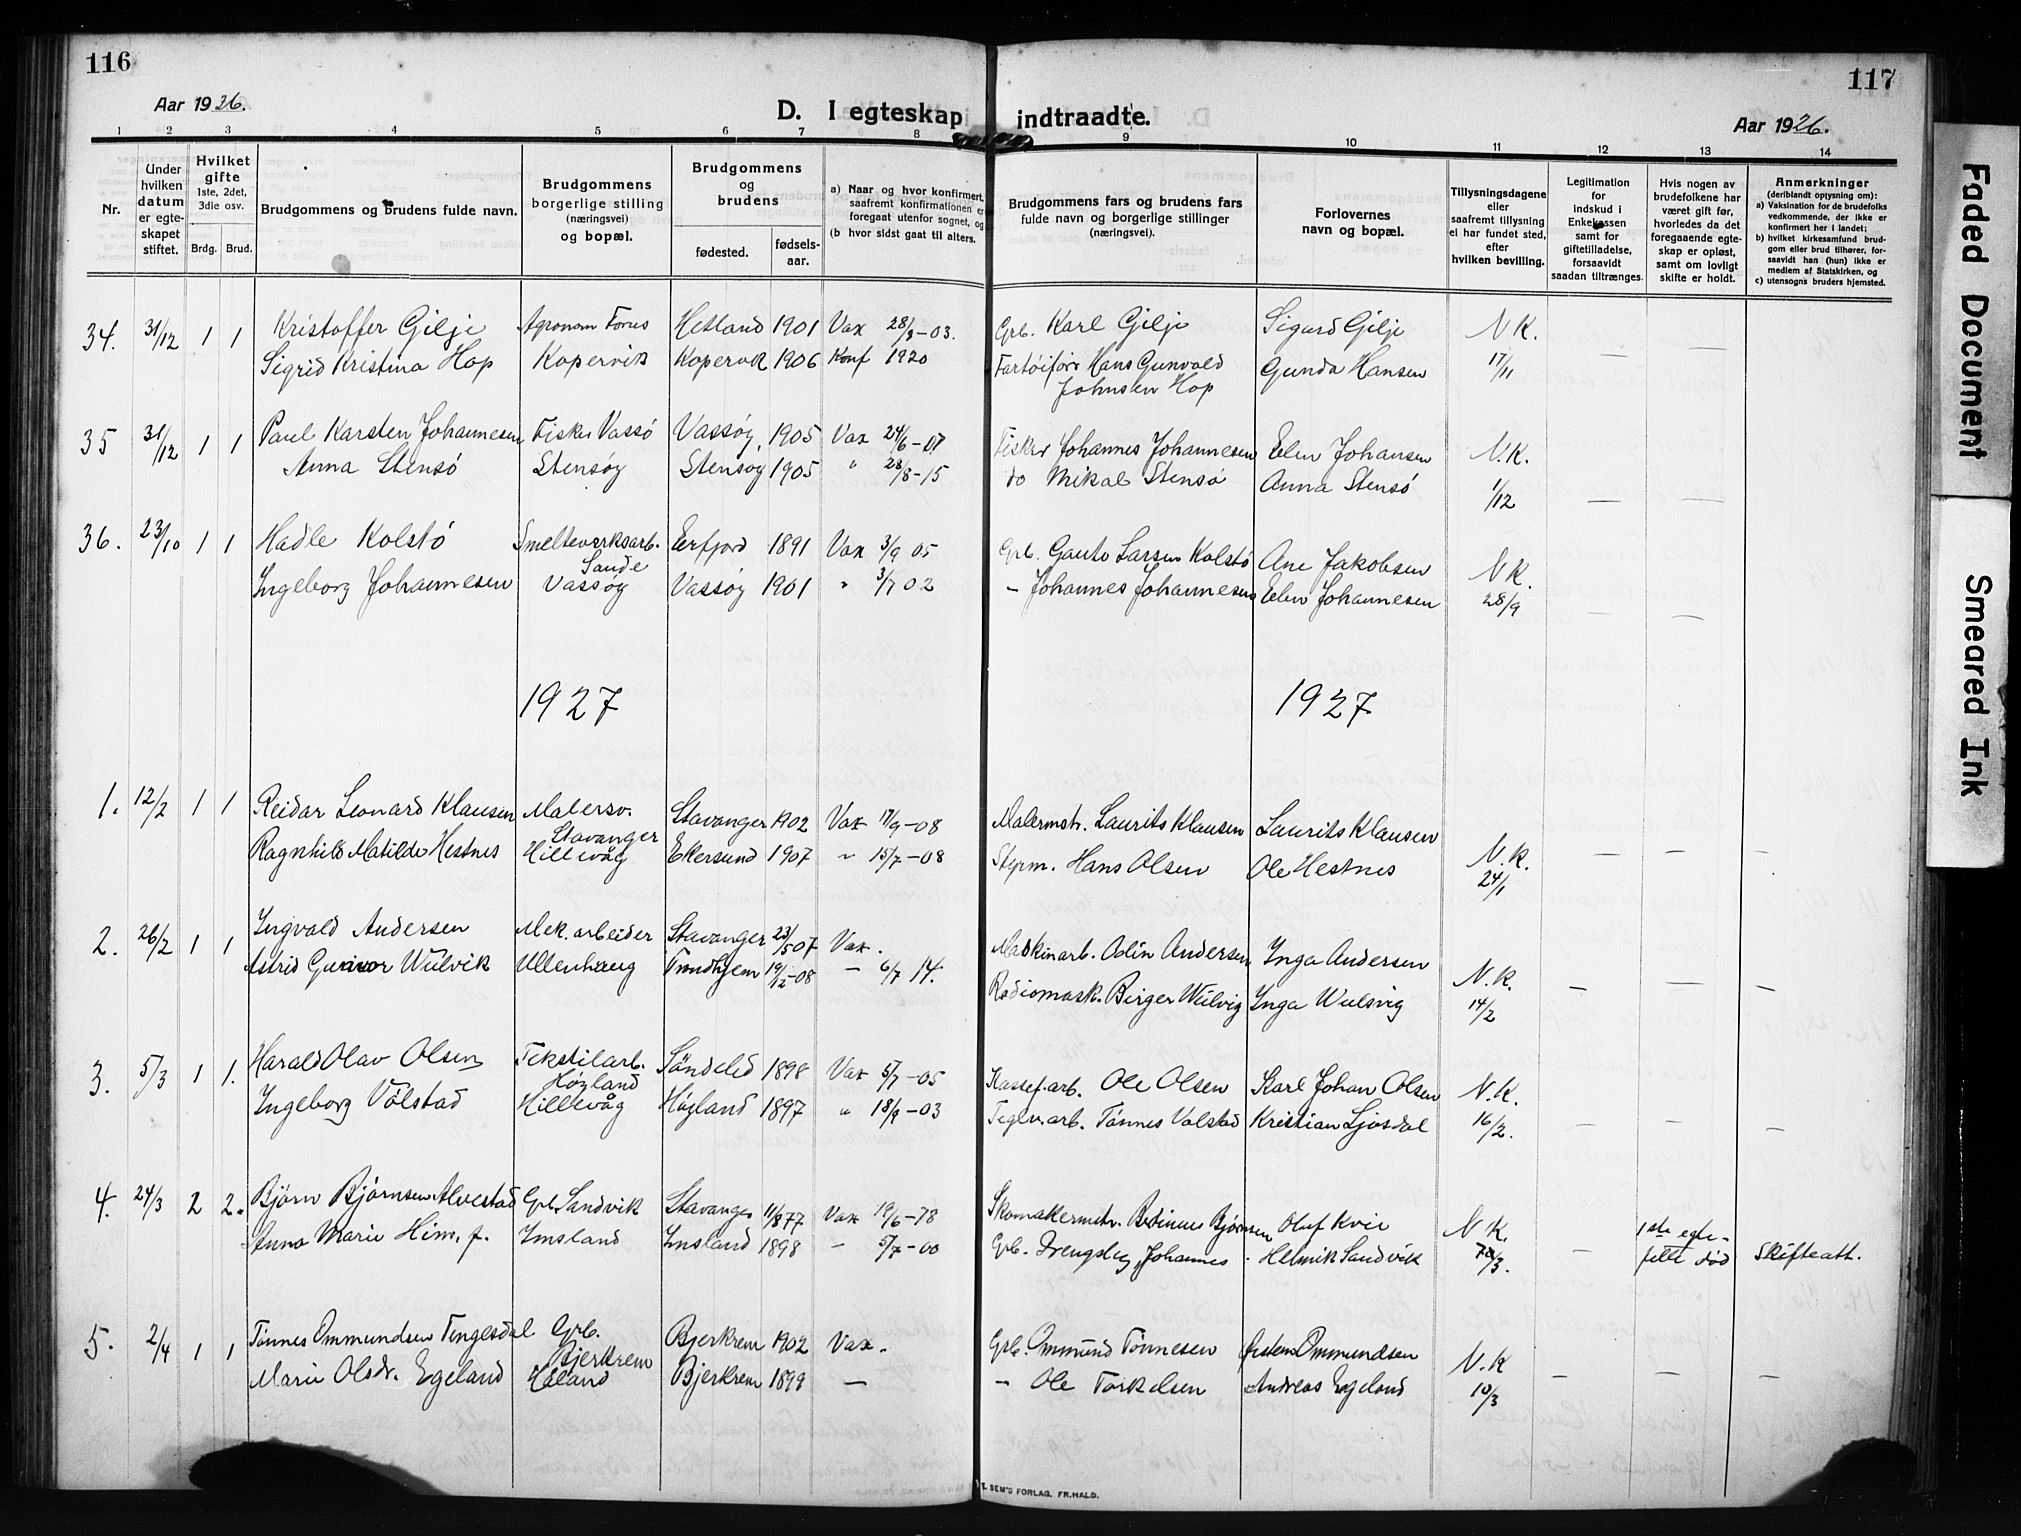 116
Aar 1926.
D. I egteskap indtraadte.
117
Aar 1926.
1 2 3 4 5 6 7 8 9 10 11 12 13 14
Nr.
Under hvilken datum er egteskapet stiftet.
Hvilket gifte 1ste, 2det, 3die osv.
Brdg. Brud.
Brudgommens og brudens fulde navn.
Brudgommens borgerlige stilling (næringsvei) og bopæl.
Brudgommens og brudens
fødested. fødselsaar.
a) Naar og hvor konfirmert, saafremt konfirmationen er foregaat utenfor sognet, og
(b hvor sidst gaat til alters.
Brudgommens fars og brudens fars fulde navn og borgerlige stillinger (næringsvei).
Forlovernes navn og bopæl.
Tillysningsdagene eller saafremt tillysning ei har fundet sted, efter hvilken bevilling.
Legitimation for indskud i Enkekassen samt for giftetilladelse, forsaavidt saadan tiltrænges.
Hvis nogen av brudefolkene har været gift før, hvorledes da det foregaaende egteskap er opløst, samt om lovligt skifte er holdt.
Anmerkninger (deriblandt opysning om):
a) Vaksination for de brudefolks vedkommende, der ikke er konfirmert her i landet;
b) hvilket kirkesamfund brudgom eller brud tilhører, forsaavidt han (hun) ikke er medlem af Statskirken, og
c) utensogns bruders hjemsted.
34. 31/12 1 1 Kristoffer Gilje Agronom Forus Hetland 1901 Vax 28/3-03. Grb. Karl Gilje Sigurd Gilje N K.
Sigrid Kristina Hop Kopervik Kopervik 1906 Konf 1920 Fartøiførr Hans Gunvald Johnsen Hop Gunda Hansen 17/11 — —
35 31/12 1 1 Paul Karsten Johannesen Fisker Vassö Vassøy, 1905 Vax 24/6-07 Fisker Johannes Johannesen Elen Johansen N.K.
Anna Stensö Stensøy Stensøy 1905 " 28/8-15 do Mikal Stensö Anna Stensö 1/12 — —
36. 23/10 1 1 Hadle Kolstö Smelteverksarb. Sande Erfjord 1891 Vax 3/9 05 Grb. Gaute Larsen Kolstö Ane Jakobsen N K.
Ingeborg Johannesen Vassøy Vassøy 1901 " 3/7 02 - Johannes Johannesen Elen Johannesen 28/9 — —
1927 1927
1. 12/2 1 1 Reidar Leonard Klausen Malersv. Stavanger Stavanger 1902 Vax 17/9-08 Malermstr. Laurits Klausen Laurits Klausen
Ragnhild Matilde Hestnes Hillevåg Ekersund 1907 " 15/7-08 Styrm. Hans Olsen Ole Hestnes N.K. 24/1 — — —
2. 26/2 1 1 Ingvald Andersen Mek. arbeider Stavanger 23/5 07 Vax. Maskinarb. Odin Andersen Inga Andersen
Astrid Wulvik Ullenhaug Trondhjem 19/12-08 - 6/7 14. Radiomask. Birger Wulvig Inga Wulsvig N.K. 14/2 — — —
3. 5/3 1 1. Harald Olav Olsen Tekstilarb. Høyland Söndeled 1898 Vax 5/7-05 Kassef.arb. Ole Olsen Karl Johan Olsen N.K.
Ingeborg Völstad Hillevåg Høyland 1897 " 18/9-03 Teglv.arb. Tønnes Volstad Kristian Ljosdal 16/2. — — —
4. 24/3 2 2. Björn Björnsen Alvestad Grb. Sandvik Stavanger 11/8 77 Vax 19/6-78 Skomakermstr. Bjørnsen Oluf Kvie N K.
Anna Marie Him, f. Imsland Imsland 1898 - 5/7-00 Grb. Johannes Helmik Sandvik /3. — 1ste egtefelle död Skifteatt.
5. 2/4 1 1 Tønnes Ommundsen Tengesdal Grb. Bjerkrem Bjerkrem 1902 Vax. Grb. Ommund Tönnesen Østen Ommundsen
Marie Olsdr. Egeland Håland Bjerkrem 1899 — - Ole Torkelsen Andreas Egeland N.K 10/3 — — —
E. SEM'S FORLAG. FR.HALD.
Faded Document
Smeared Ink